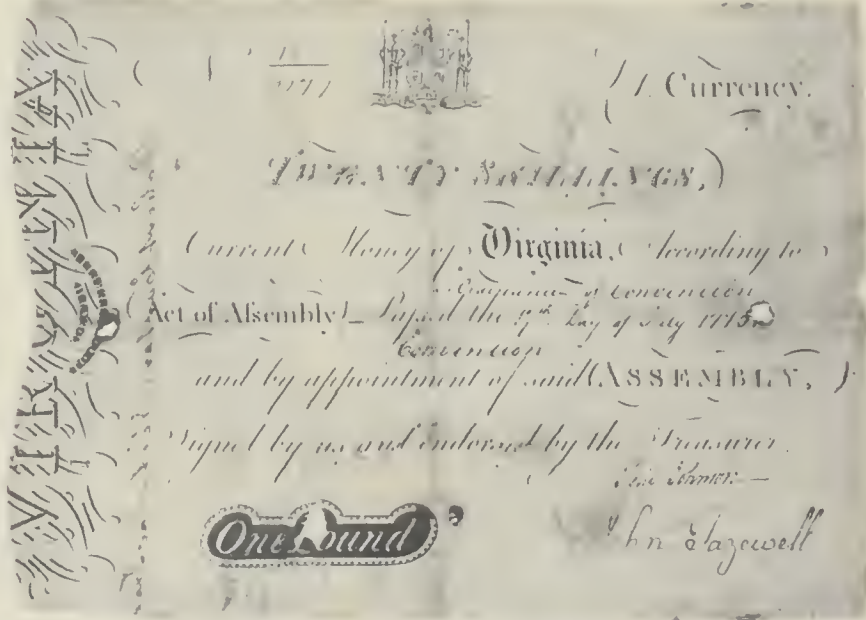 VIRGINIA
Currency.
TWENTY SHILLINGS,
Current Money of Virginia, According to
of Convention
Act of Assembly Passed the 17th Day of July 1775
Convention
and by appointment of said ASSEMBLY,
Signed by us and endorsed by the Treasurer.
One Pound